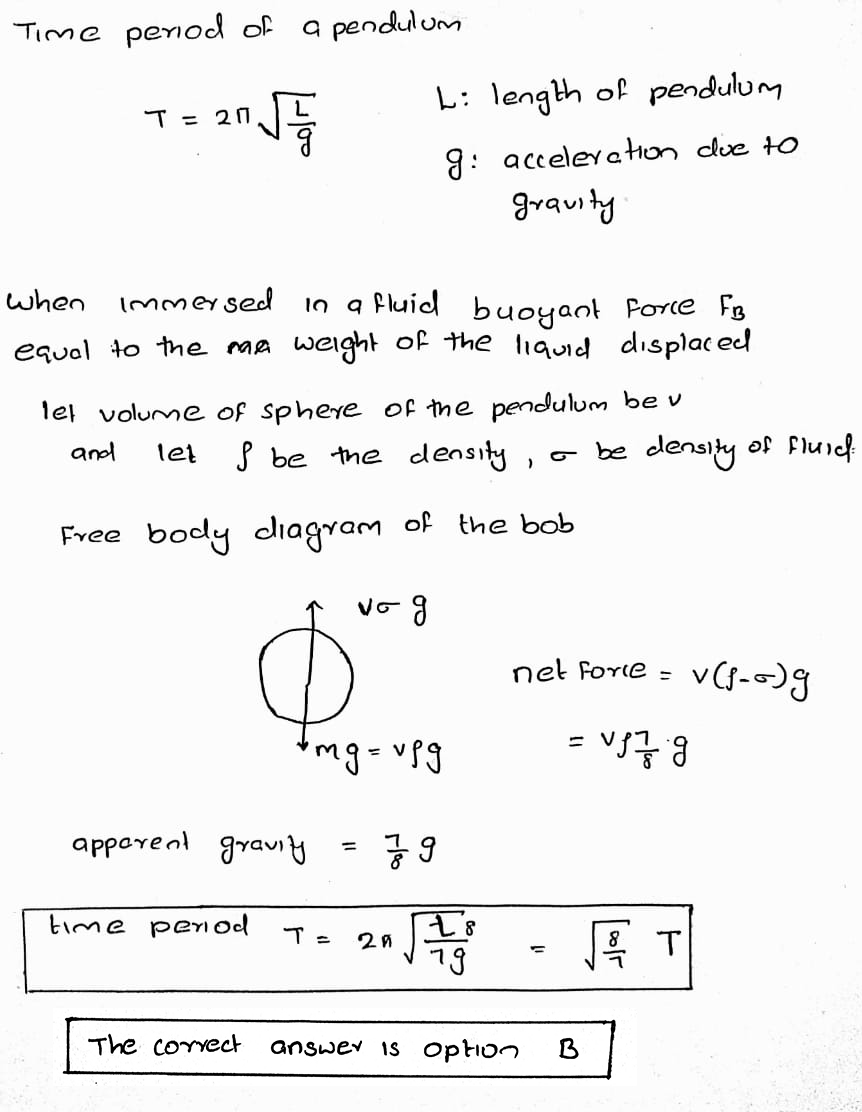 Time period of a pendulum
T = 2π √(L/g)
L: length of pendulum
g: acceleration due to
gravity
when immersed in a fluid buoyant force F_B
equal to the weight of the liquid displaced
let volume of sphere of the pendulum be v
and let ρ be the density, σ be density of fluid.
Free body diagram of the bob
vσg
net force = v(ρ-σ)g
mg = vρg
= vρ 7/8 g
apparent gravity = 7/8 g
time period T = 2π √(L8/7g) = √(8/7) T
The correct answer is option B